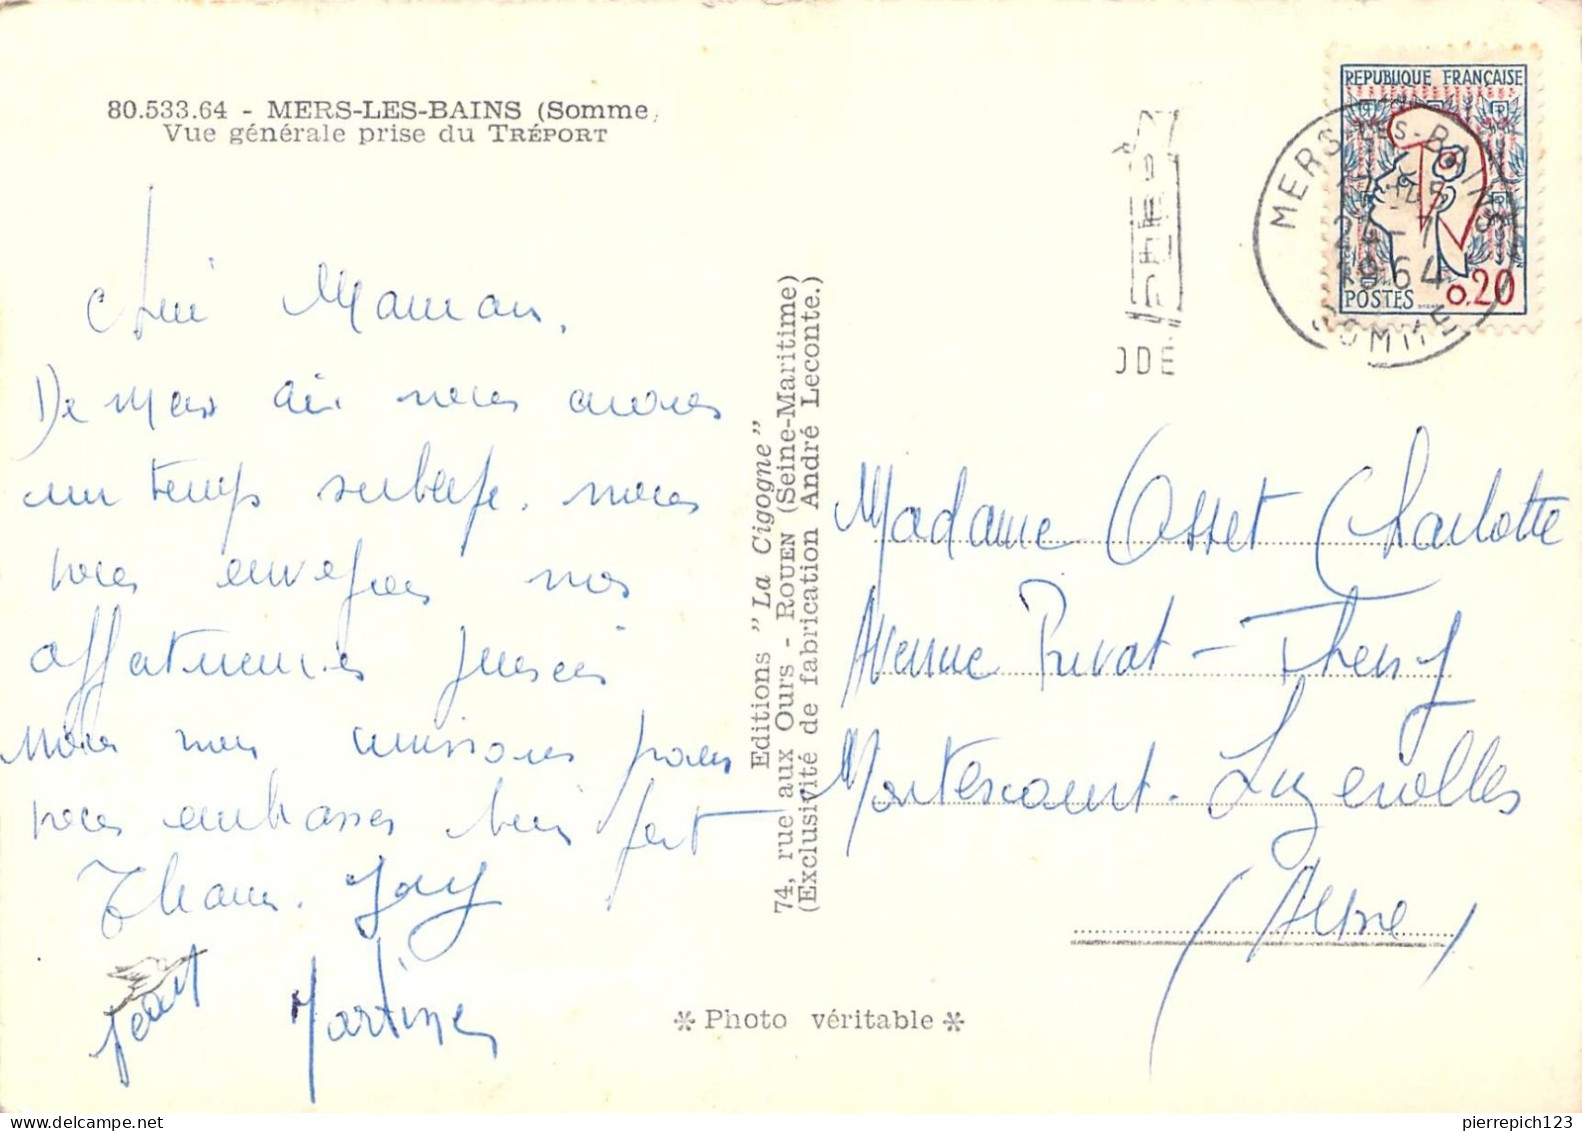 80.533.64 - MERS-LES-BAINS (Somme
Vue générale prise du TRÉPORT
Maman,
De Mers nous avons
un temps superbe. nous
vous envoyons nos
affectueuses pensées
nous nous unissons pour
vous embrasser bien fort
Jean
Martine
Editions "La Cigogne"
74, rue aux Ours - ROUEN (Seine-Maritime)
(Exclusivité de fabrication André Leconte.)
✻ Photo véritable ✻
ODE
REPUBLIQUE FRANÇAISE
POSTES
0.20
MERS-LES-BAINS
-7
1964
SOMME
Madame Osset Charlotte
Avenue Privat-
Montescourt-Lizerolles
(Aisne)
pierrepich123